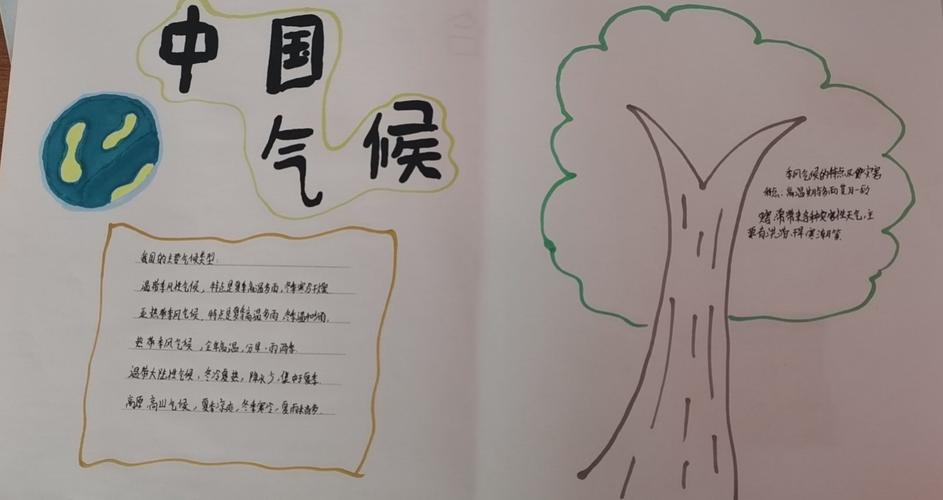 中国
气候
我国的主要气候类型:
温带季风性气候,特点是夏季高温多雨,冬季寒冷干燥
亚热带季风气候,特点是夏季高温多雨,冬季温和少雨.
热带季风气候,全年高温,分旱、雨两季.
温带大陆性气候,冬冷夏热,降水少,集中夏季.
高原高山气候,夏季凉爽,冬季寒冷,夏雨
季风气候的特点及灾害
特点:高温期与多雨期一致
灾害:常带来各种灾害性天气,主
要有洪涝、干旱、寒潮等